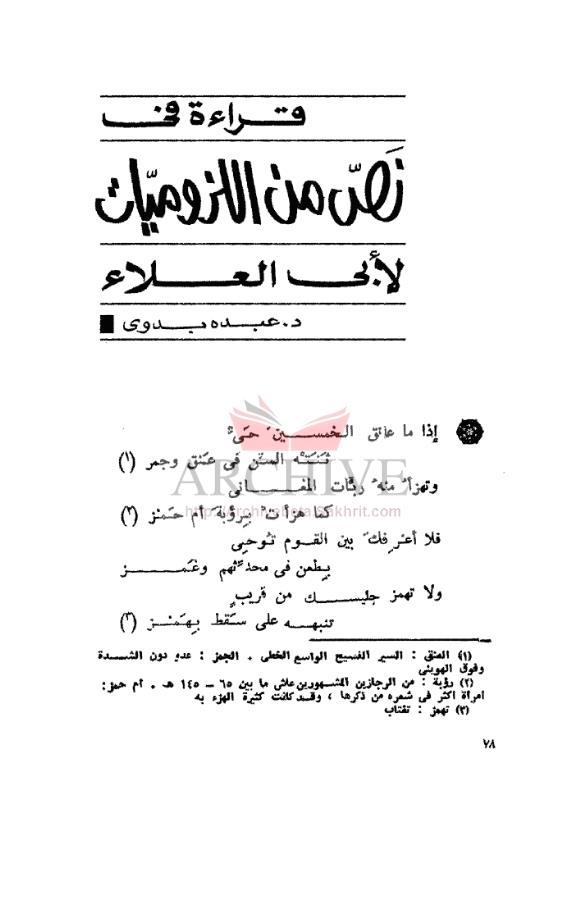 قراءة في
نَصّ من اللزوميّات
لأبى العلاء
د. عبده بدوى
إذا ما عانق الخمسين حىٌّ
ثنته السن فى عنق وجمز (١)
وتهزأ منه ربّات المغانى
ARCHIVE
كما هزأت برؤبة أم حمز (٢)
فلا أعرفك بين القوم توحى
بطعن فى محدثهم وغمز
ولا تهمز جليسك من قريب
تنبهه على سقط بهمز (٣)
(١) العنق : السير الفسيح الواسع الخطى . الجمز : عدو دون الشدة
وفوق الهوينى
(٢) رؤبة : من الرجازين المشهورين عاش ما بين ٦٥ – ١٤٥ هـ . أم حمز :
امرأة أكثر فى شعره من ذكرها ، وقد كانت كثيرة الهزء به
(٣) تهمز : تغتاب
٧٨